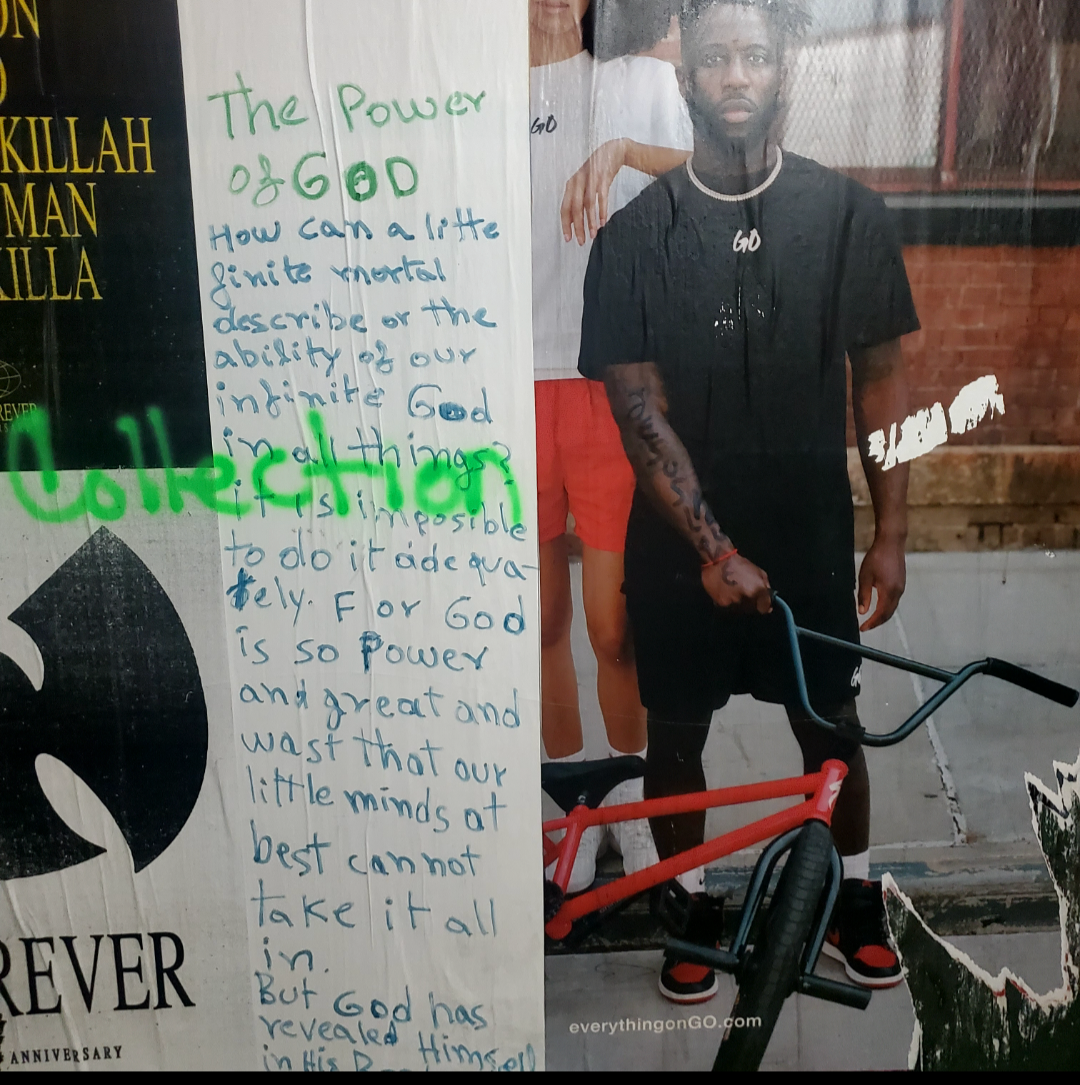 ON
KILLAH
MAN
KILLA
REVER
Collection
REVER
ANNIVERSARY
The Power
of GOD
How can a litte
finite mortal
describe or the
ability of our
infinite God
in all things?
it is imposible
to do it adequa-
tely. For God
is so Power
and great and
wast that our
little minds at
best cannot
take it all
in.
But God has
revealed Himself
in His
GO
GO
everythingonGO.com